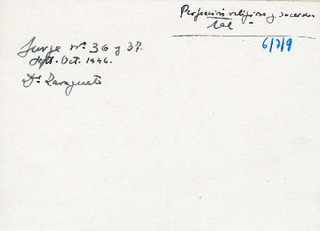 Perfección religiosa y sacerdo
tal
6/7/9
Surge nº 36 y 37.
Sept. Oct. 1946.
Dr. Zaragüeta